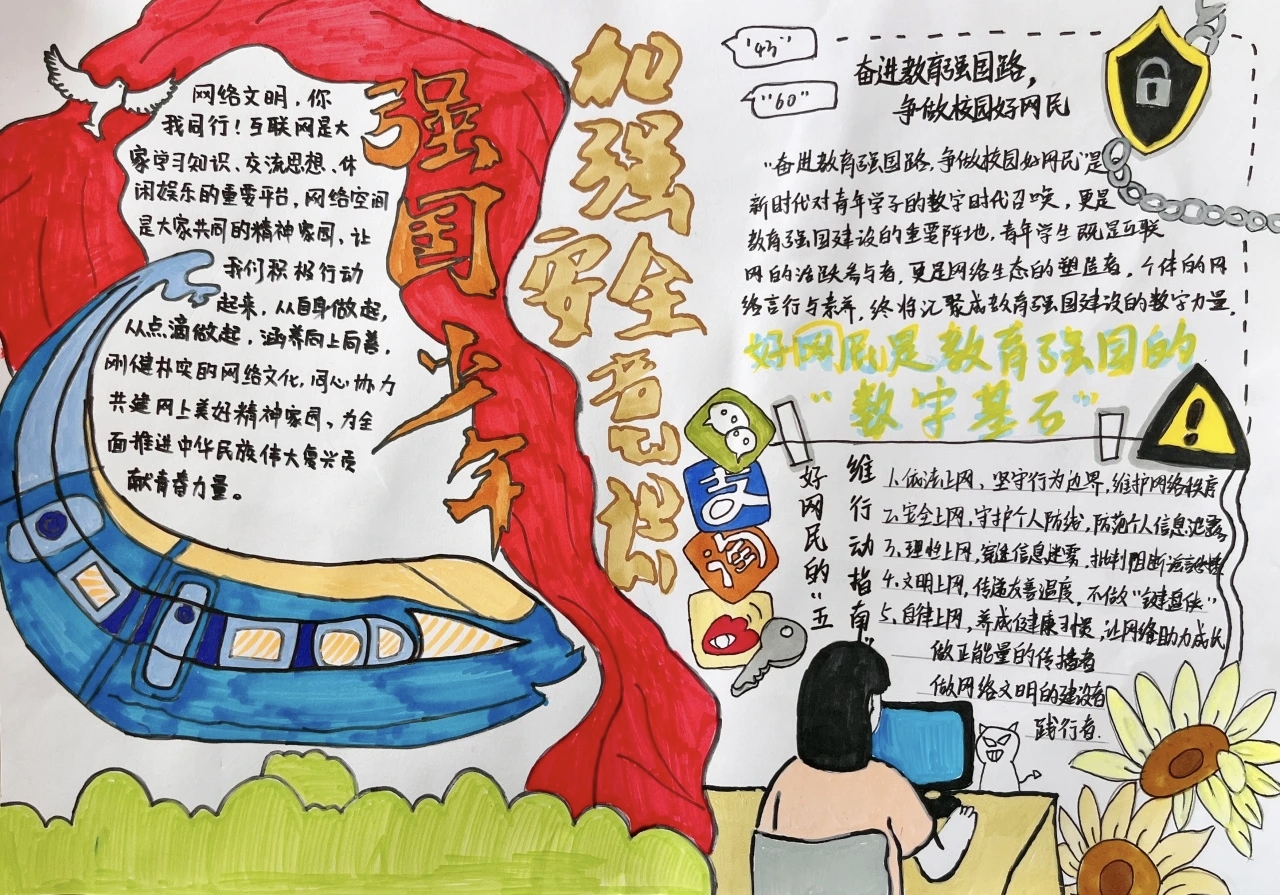 强国少年
加强
安全意识
网络文明，你
我同行！互联网是大
家学习知识、交流思想、休
闲娱乐的重要平台，网络空间
是大家共同的精神家园，让
我们积极行动
起来，从自身做起，
从点滴做起，涵养向上向善，
刚健朴实的网络文化，同心协力
共建网上美好精神家园，为全
面推进中华民族伟大复兴贡
献青春力量。
"45"
"60"
奋进教育强国路，
争做校园好网民
"奋进教育强国路，争做校园好网民"是
新时代对青年学子的数字时代召唤，更是
教育强国建设的重要阵地，青年学生既是互联
网的活跃参与者，更是网络生态的塑造者。个体的网
络言行与素养，终将汇聚成教育强国建设的数字力量。
好网民是教育强国的
"数字基石"
支
淘
好网民的"五
维行动指南"
1.依法上网，坚守行为边界，维护网络秩序
2.安全上网，守护个人防线，防范个人信息泄露
3.理性上网，穿透信息迷雾，批判阻断谣言
4.文明上网，传递友善温度，不做"键盘侠"
5.自律上网，养成健康习惯，让网络助力成长
做正能量的传播者
做网络文明的建设者
践行者.